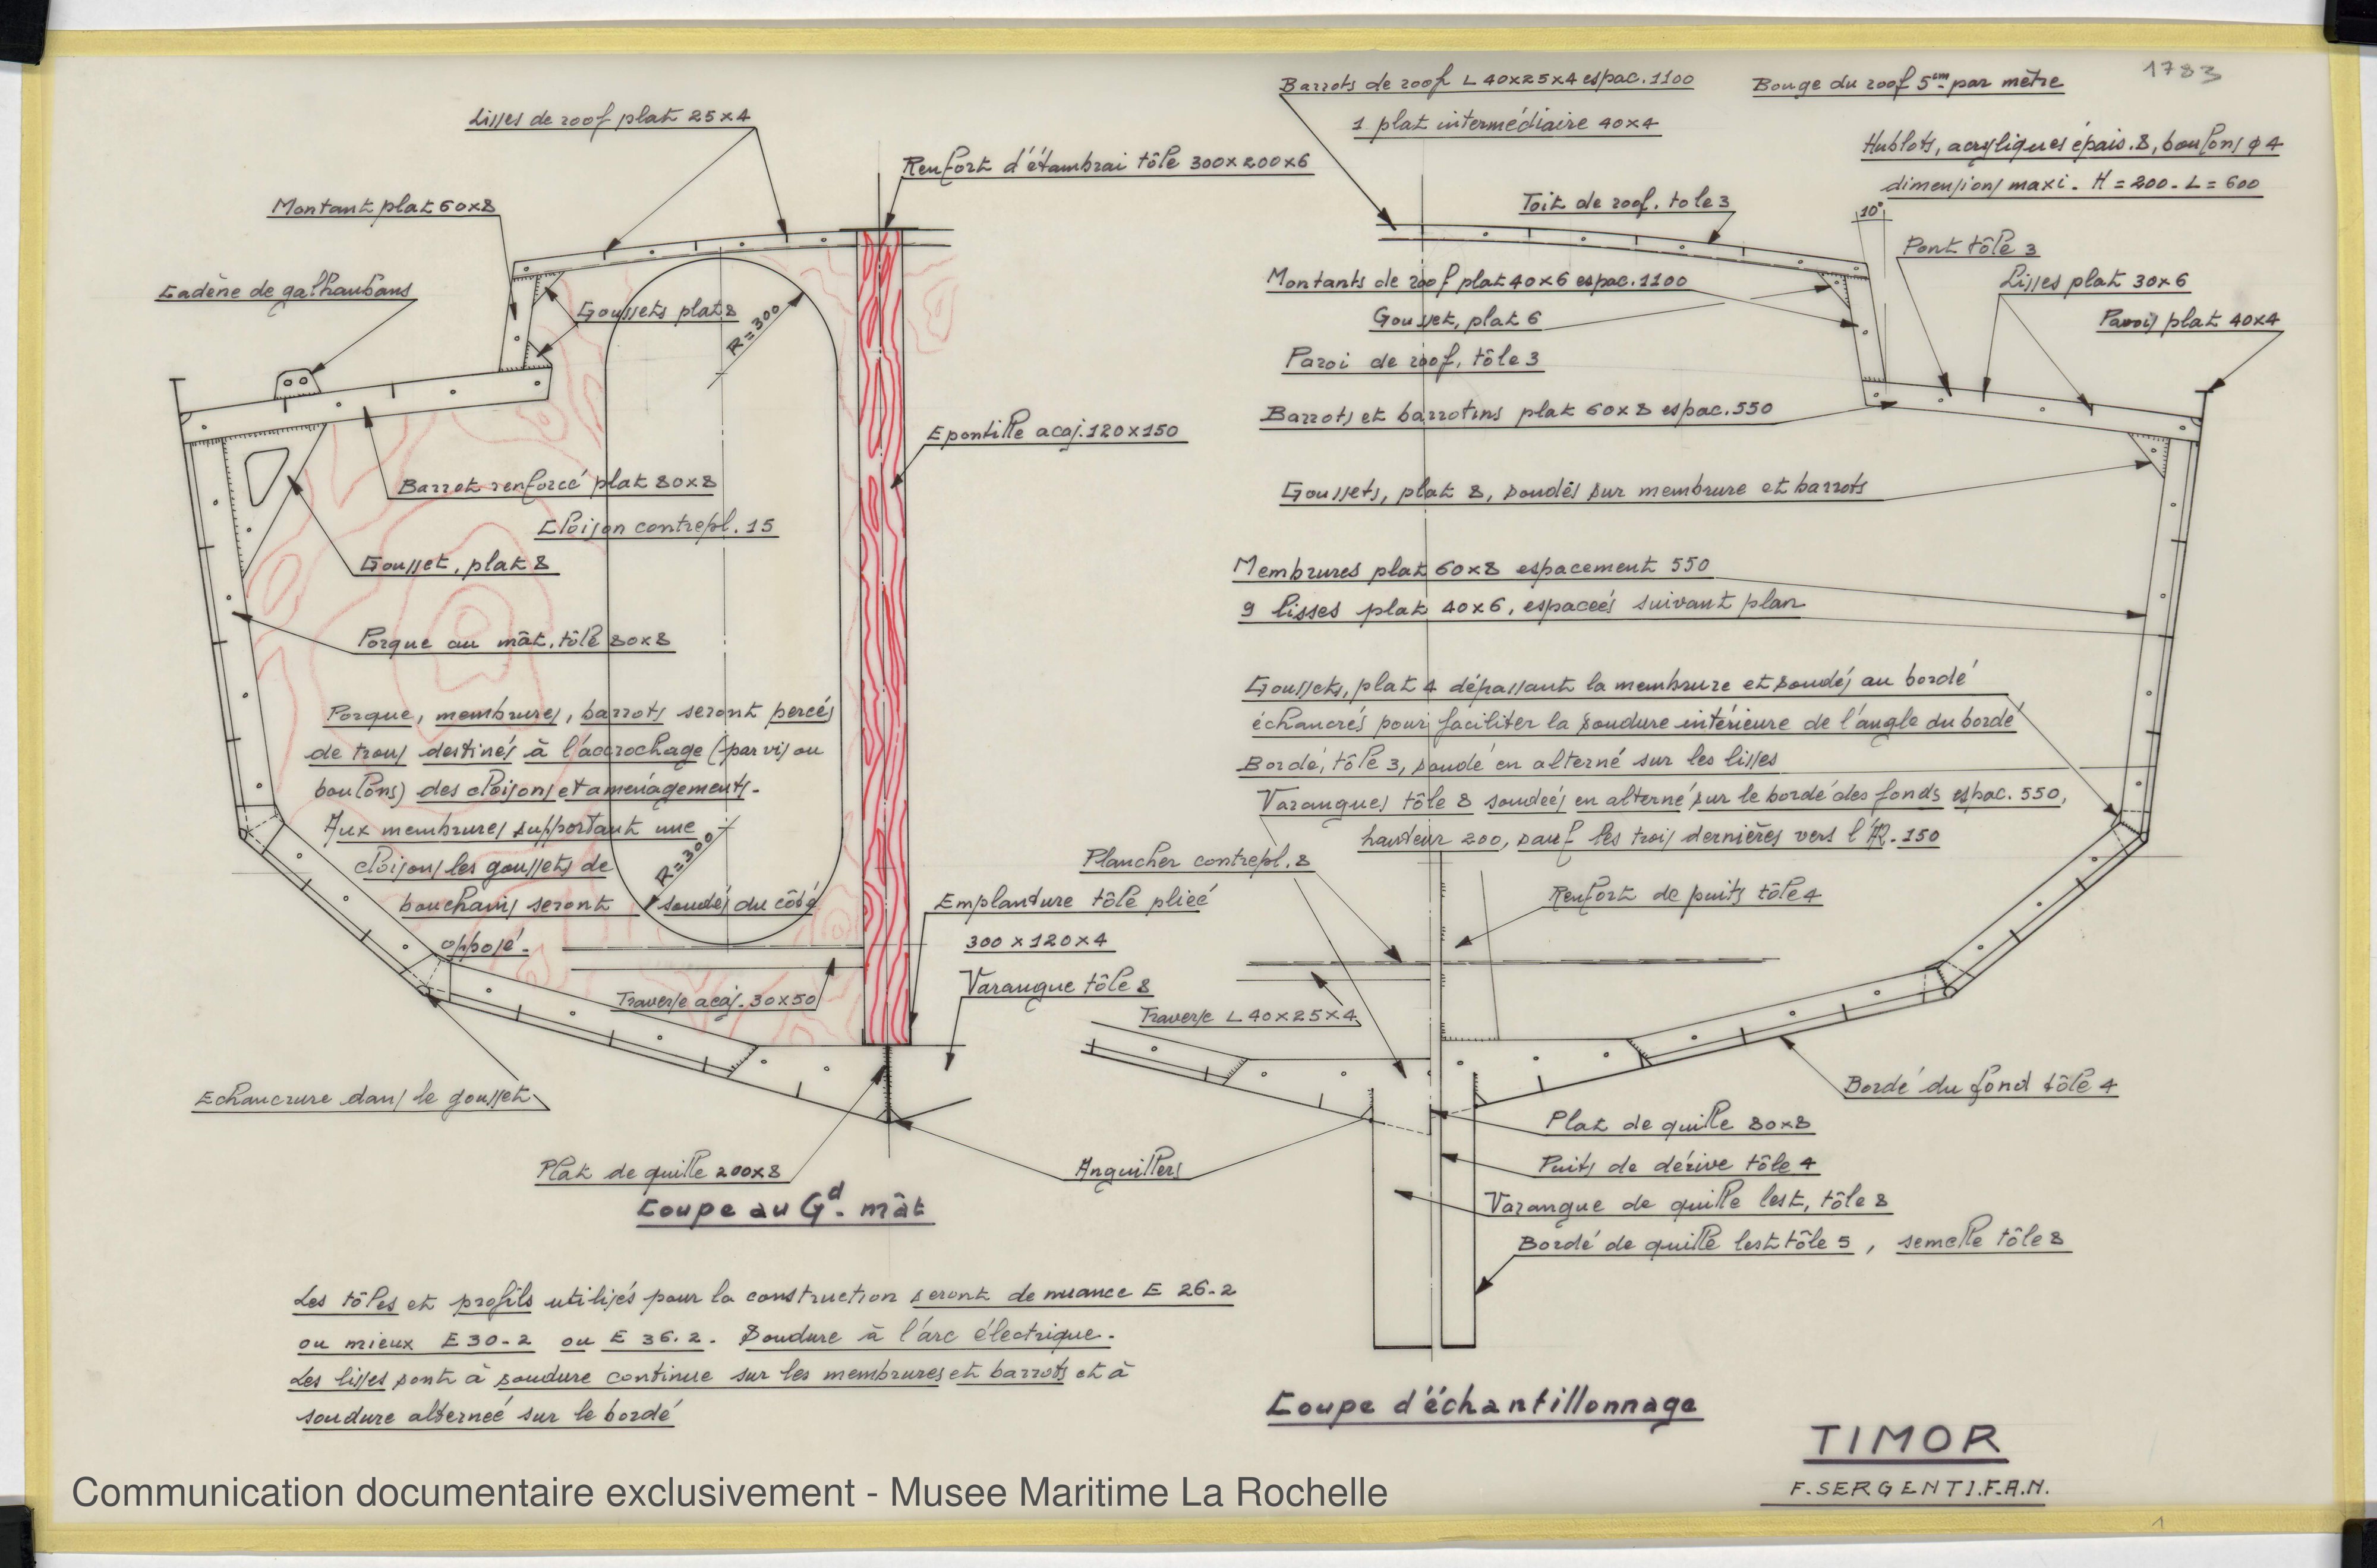 1783
Lisses de roof plat 25x4
Renfort d'étambrai tôle 300x200x6
Montant plat 60x8
Cadène de galhaubans
Goussets plat 8
R=300
Epontille acaj. 120x150
Barrot renforcé plat 80x8
Cloison contrepl. 15
Gousset, plat 8
Porque au mât, tôle 80x8
Porque, membrures, barrots seront percés
de trous destinés à l'accrochage (par vis ou
boulons) des cloisons et aménagements.
Aux membrures supportant une
cloison, les goussets de
bouchains seront soudés du côté
opposé.
R=300
Traverse acaj. 30x50
Emplanture tôle pliée
300 x 120 x 4
Varangue tôle 8
Echancrure dans le gousset
Plat de quille 200x8
Anguillers
Coupe au Gd. mât
Les tôles et profils utilisés pour la construction seront de nuance E 26-2
ou mieux E 30-2 ou E 36.2. Soudure à l'arc électrique.
Les lisses sont à soudure continue sur les membrures et barrots et à
soudure alternée sur le bordé
Barrots de roof L 40x25x4 espac. 1100
1 plat intermédiaire 40x4
Bouge du roof 5cm par mètre
Hublots, acryliques épais. 8, boulons φ 4
dimensions maxi. H = 200. L = 600
Toit de roof. tole 3
10°
Pont tôle 3
Lisses plat 30x6
Pavois plat 40x4
Montants de roof plat 40x6 espac. 1100
Gousset, plat 6
Paroi de roof, tôle 3
Barrots et barrotins plat 60x8 espac. 550
Goussets, plat 8, soudés sur membrure et barrots
Membrures plat 60x8 espacement 550
9 lisses plat 40x6, espacées suivant plan
Goussets, plat 4 dépassant la membrure et soudés au bordé
échancrés pour faciliter la soudure intérieure de l'angle du bordé
Bordé, tôle 3, soudé en alterné sur les lisses
Varangues tôle 8 soudées en alterné sur le bordé des fonds espac. 550,
hauteur 200, sauf les trois dernières vers l'AR. 150
Plancher contrepl. 8
Renfort de puits tôle 4
Traverse L 40x25x4
Bordé du fond tôle 4
Plat de quille 80x8
Puits de dérive tôle 4
Varangue de quille lest, tôle 8
Bordé de quille lest tôle 5, semelle tôle 8
Coupe d'échantillonnage
TIMOR
F. SERGENT I.F.A.N.
Communication documentaire exclusivement - Musee Maritime La Rochelle
1